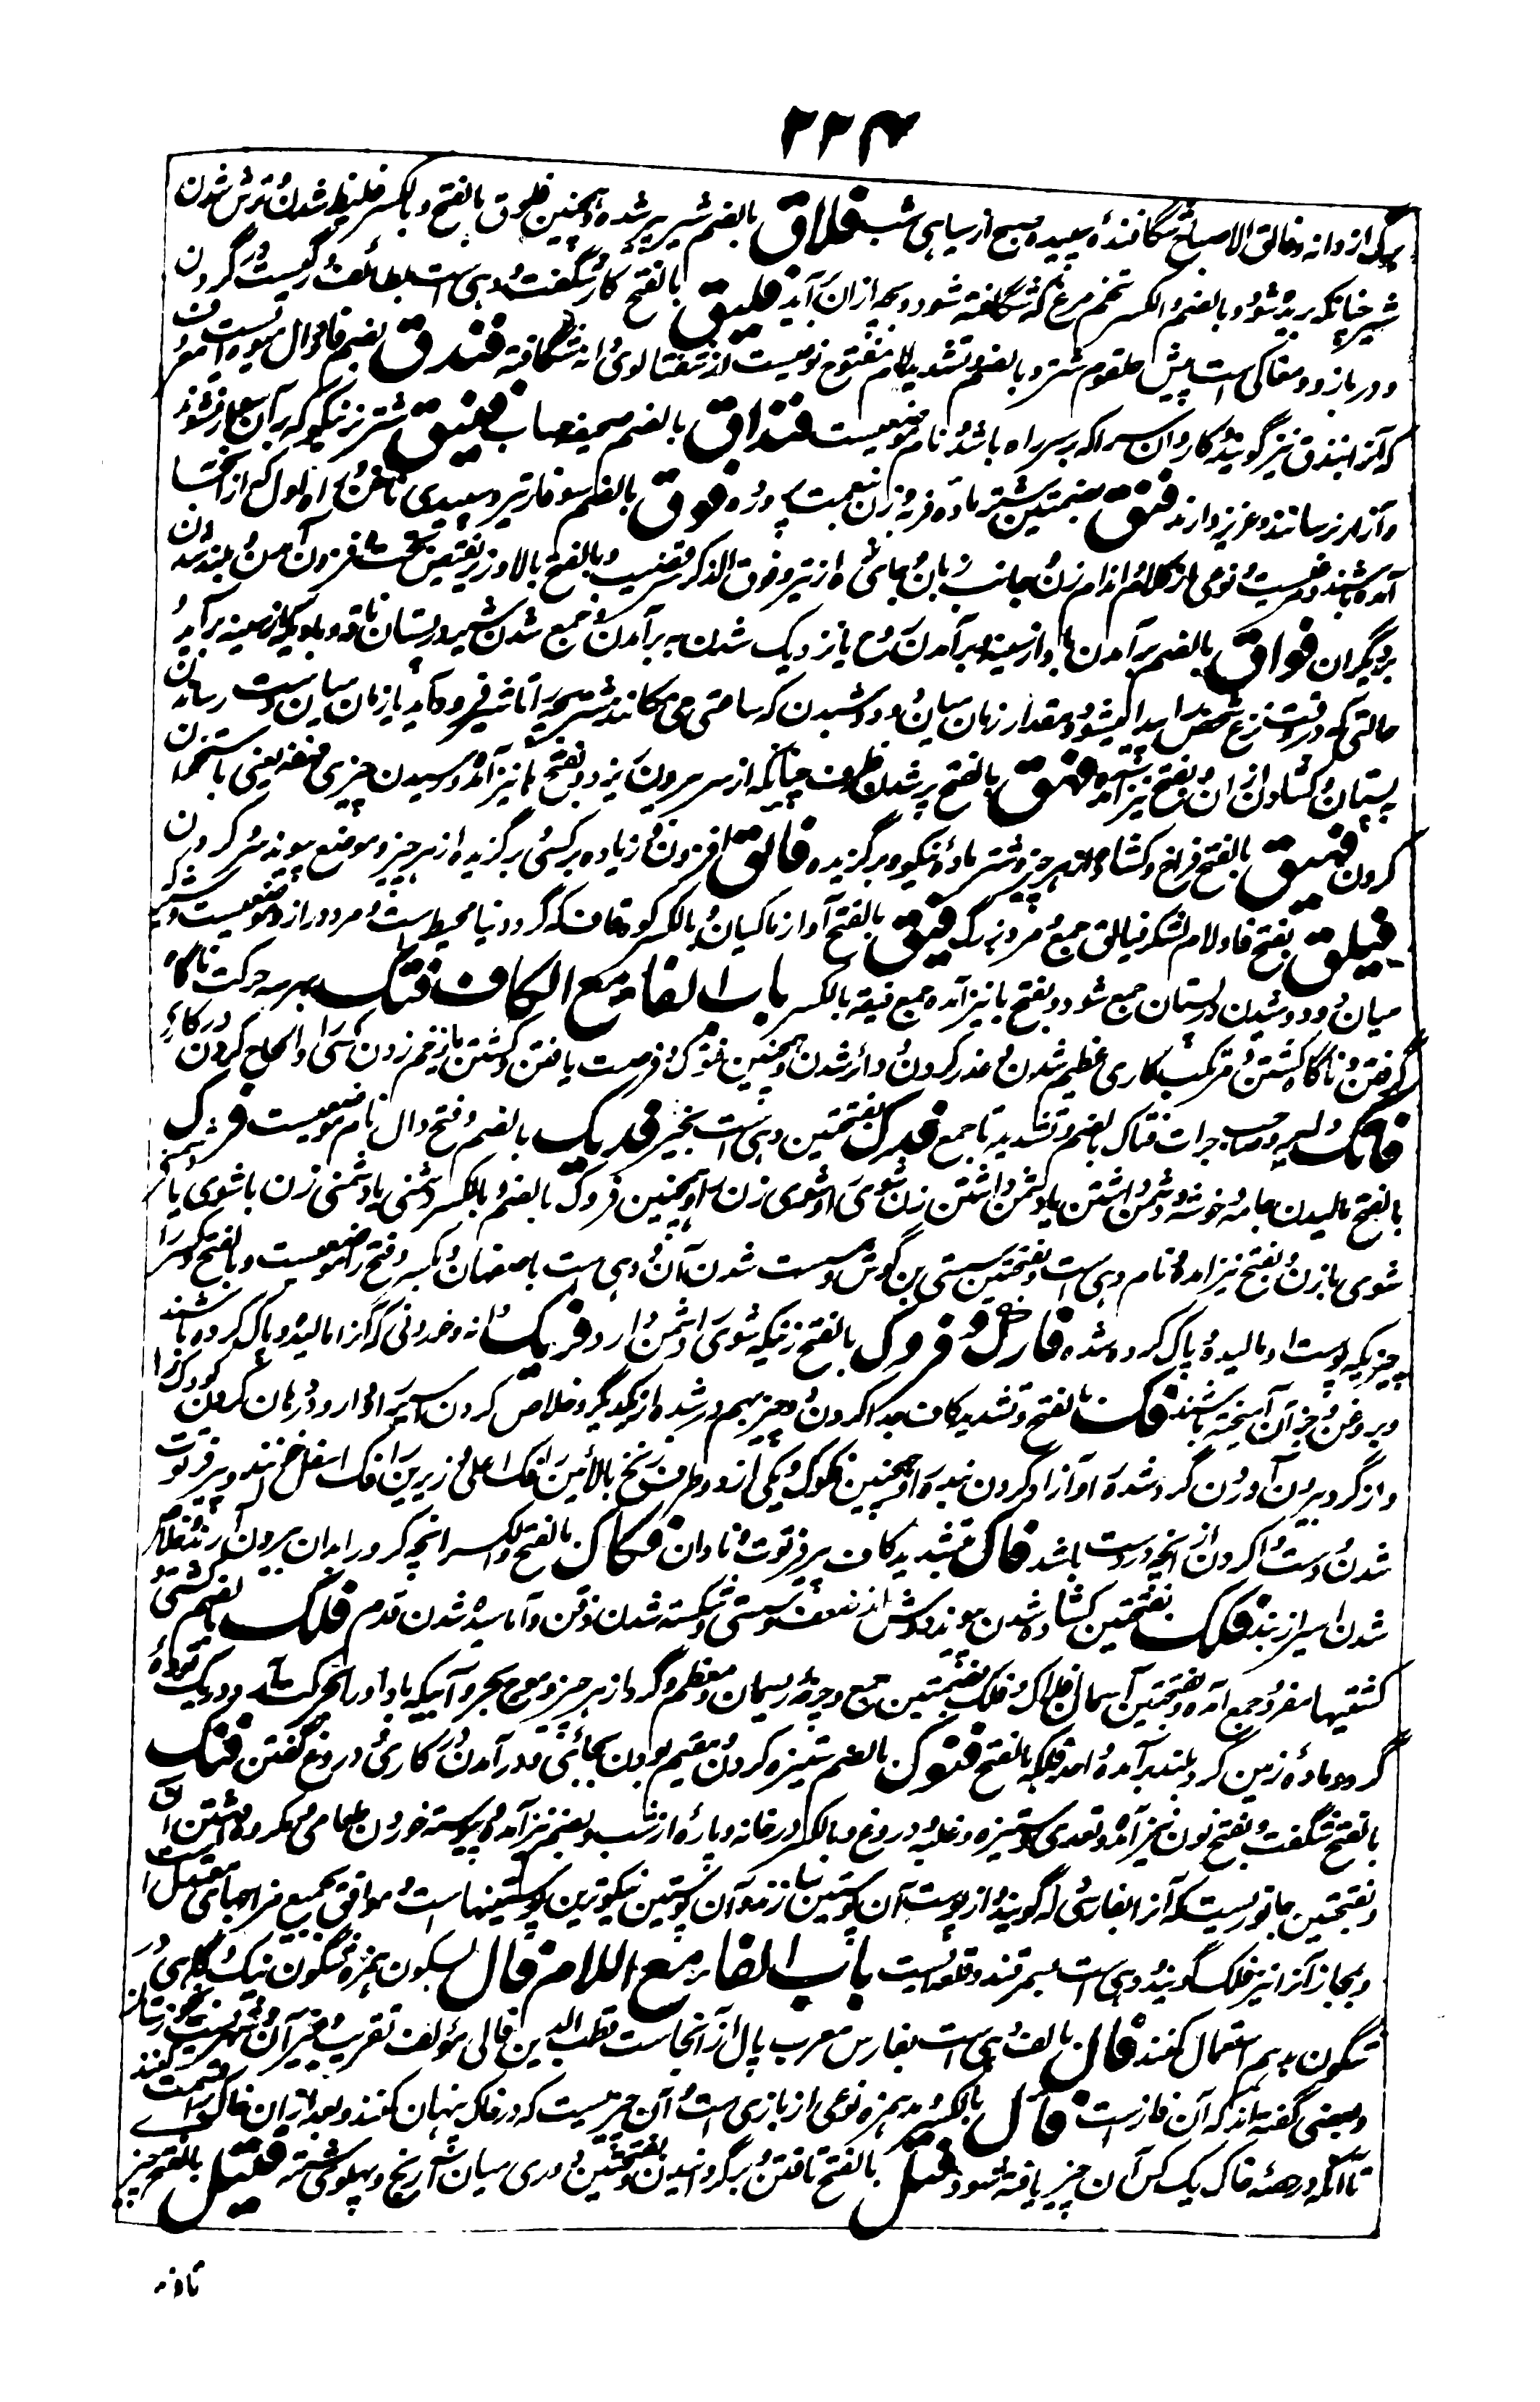 ۲۲۴
برگ از دانه و فالق الاصباح شگافنده سپیده صبح از سیاهی شب فلاق بالضم شیر بریده شده و همچنین فلوق بالفتح و بالکسر غلیظ شدن و ترش شدن
شیر چنانکه بریده شود و بالضم و الکسر تخم مرغ که شگافته شود و بچه ازان برآید فلیق بالفتح کار شگفت و دهی است بطائف و رگیست در گردن
و در بازو و مغاکی است پیش حلقوم شتر و بالضم و تشدید لام مفتوح نوعیست از شفتالوی دانه شگافته فندق بضم فا و دال میوه است معروف
که آنرا بندق نیز گویند و کاروان سرا که بر سر راه باشد و نام موضعیست فنداق بالضم صحیفه حساب فنیق شتر نر نیکو که بر آن سوار نشوند
و آزار نرسانند و عزیز دارند فنق بضمتین شتر ماده فربه و زن نعمت پرورده فوق بالضم سوفار تیر و سپیدی ناخن و راه اول که از انجا
آمده باشند و مرغیست و نوعی از کلام و اندام زن و جانب زبان و جای زه از تیر و فوق الذکر قضیب و بالفتح بالا و زیر نقیض تحت و افزون آمدن و بلند شدن
بر دیگران فواق بالضم برآمدن باد از سینه و برآمدن روح یا نزدیک شدن به برآمدن و جمع شدن شیر در پستان ناقه و بادیکه از سینه برآید و
حالتی که در وقت نزع شخص را پیدا میشود و مقدار زمان میان دو دوشیدن که ساعتی می مکانند شتر بچه را تا شیر فرود آید یا زمان میان دست رساندن
پستان و کشادن ازان و بفتح نیز آمده فهق بالفتح پر شدن ظرف چنانکه از سر بیرون ریزد و بفتح ها نیز آمده و رسیدن چیزی بمغز یعنی باستخوان
گردن فهیق بالفتح فراخ و کشاده از هر چیز و شتر ماده نیکو و برگزیده فائق افزون و زیاده بر کسی و برگزیده از هر چیز و موضع پیوند سر گردن
فیلق بفتح فا و لام لشکر فیالق جمع و مرد بزرگ فیق بالفتح آواز ماکیان و بالکسر کوه قاف که گرد دنیا محیط است و مرد دراز و موضعیست و شیریکه
میان دو دوشیدن در پستان جمع شود و بفتح یا نیز آمده جمع فیقه بالکسر باب الفا مع الکاف فتک بهر سه حرکت ناگاه
گرفتن و ناگاه کشتن و مرتکب کاری عظیم شدن و غدر کردن و دلیر شدن و همچنین فتوک و فرصت یافتن و کشتن یا زخم زدن کسی را و الحاح کردن در کاری
فاتک دلیر و صاحب جرات فتاک بالضم و تشدید تا جمع فدک بفتحتین دهی است بخیبر فدیک بالضم و فتح دال نام موضعیست فرک
بالفتح مالیدن جامه و خوشه و دشمن داشتن یا دشمن داشتن زن شوی را و شوی زن را و همچنین فروک بالضم و بالکسر دشمنی یا دشمنی زن با شوی یا دشمنی
شوی با زن و بفتح نیز آمده و نام دهی است و بفتحتین سستی بن گوش و سست شدن آن و دهی است باصفهان و بکسر و فتح را موضعیست و بالفتح و کسر را
چیزیکه پوست او مالیده و پاک کرده شده فارک و فروک بالفتح زنیکه شوی را دشمن دارد فریک دانه و خوردنی که آنرا مالیده و پاک کرده باشند
و بروغن و جز آن آمیخته باشند فک بالفتح و تشدید کاف جدا کردن دو چیز بهم در شده از یکدیگر و خلاص کردن اسیر را و دارو در دهان کردن کودک را
و از گرو بیرون آوردن گرو شده را و آزاد کردن بنده را و همچنین فکوک و یکی از دو طرف زنخ بالائین را فک اعلی و زیرین را فک اسفل خوانند و پیر فرتوت
شدن و دست وا کردن از آنچه در دست باشد فاک بتشدید کاف پیر فرتوت و نادان فکاک بالفتح و الکسر انچه گرو را بدان بیرون آرند و خلاص
شدن اسیر از بند فکک بفتحتین کشاده شدن پیوند دوش از ضعف و سستی و شکسته شدن ذقن و آماسیده شدن قدم فلک بالضم کشتی و
کشتیها مفرد و جمع آمده و بفتحتین آسمان افلاک و فلک بضمتین جمع و چرخ ریسمان و معظم و گرد از هر چیز و موج بحر و آبیکه باد او را بحرکت آرد و ریگ توده
گرد و ماده زمین گرد بلند برآمده و احد فلکه بالفتح فنوک بالضم ستیزه کردن و مقیم بودن بجائی و در آمدن در کاری و دروغ گفتن فنک
بالفتح شگفت و بفتح نون نیز آمده و تعدی و ستیزه و غلبه و دروغ و بالکسر در خانه و پاره از شب و بضم نیز آمده و پیوسته خوردن طعامی و مکروه نداشتن آن
و بفتحتین جانوریست که آنرا بفارسی دله گویند و از پوست آن پوستین سازند و آن پوستین نیکوترین پوستینهاست و موافق بجمیع مزاجهای معتدل است
و بمجاز آنرا نیز فلک گویند و دهی است بسمرقند و قلعه ایست باب الفا مع اللام فال بسکون همزه شگون نیک و گاهی در
شگون بد هم استعمال کنند فال بالف دهی است بفارس معرب پال از آنجاست قطب الدین فالی مؤلف تقریب و غیر آن و شهریست بخوزستان
و بعضی گفته اند که آن فازست فآل بالکسر و مد همزه نوعی از بازی است و آن چیزیست که در خاک پنهان کنند و بعد ازان خاک را قسمت کنند
تا آنکه در حصه خاک یک کس آن چیز یافته شود فتل بالفتح تافتن و برگردانیدن و بفتحتین دوری میان آرنج و پهلوی شتر فتیل بالفتح چیز
تافته